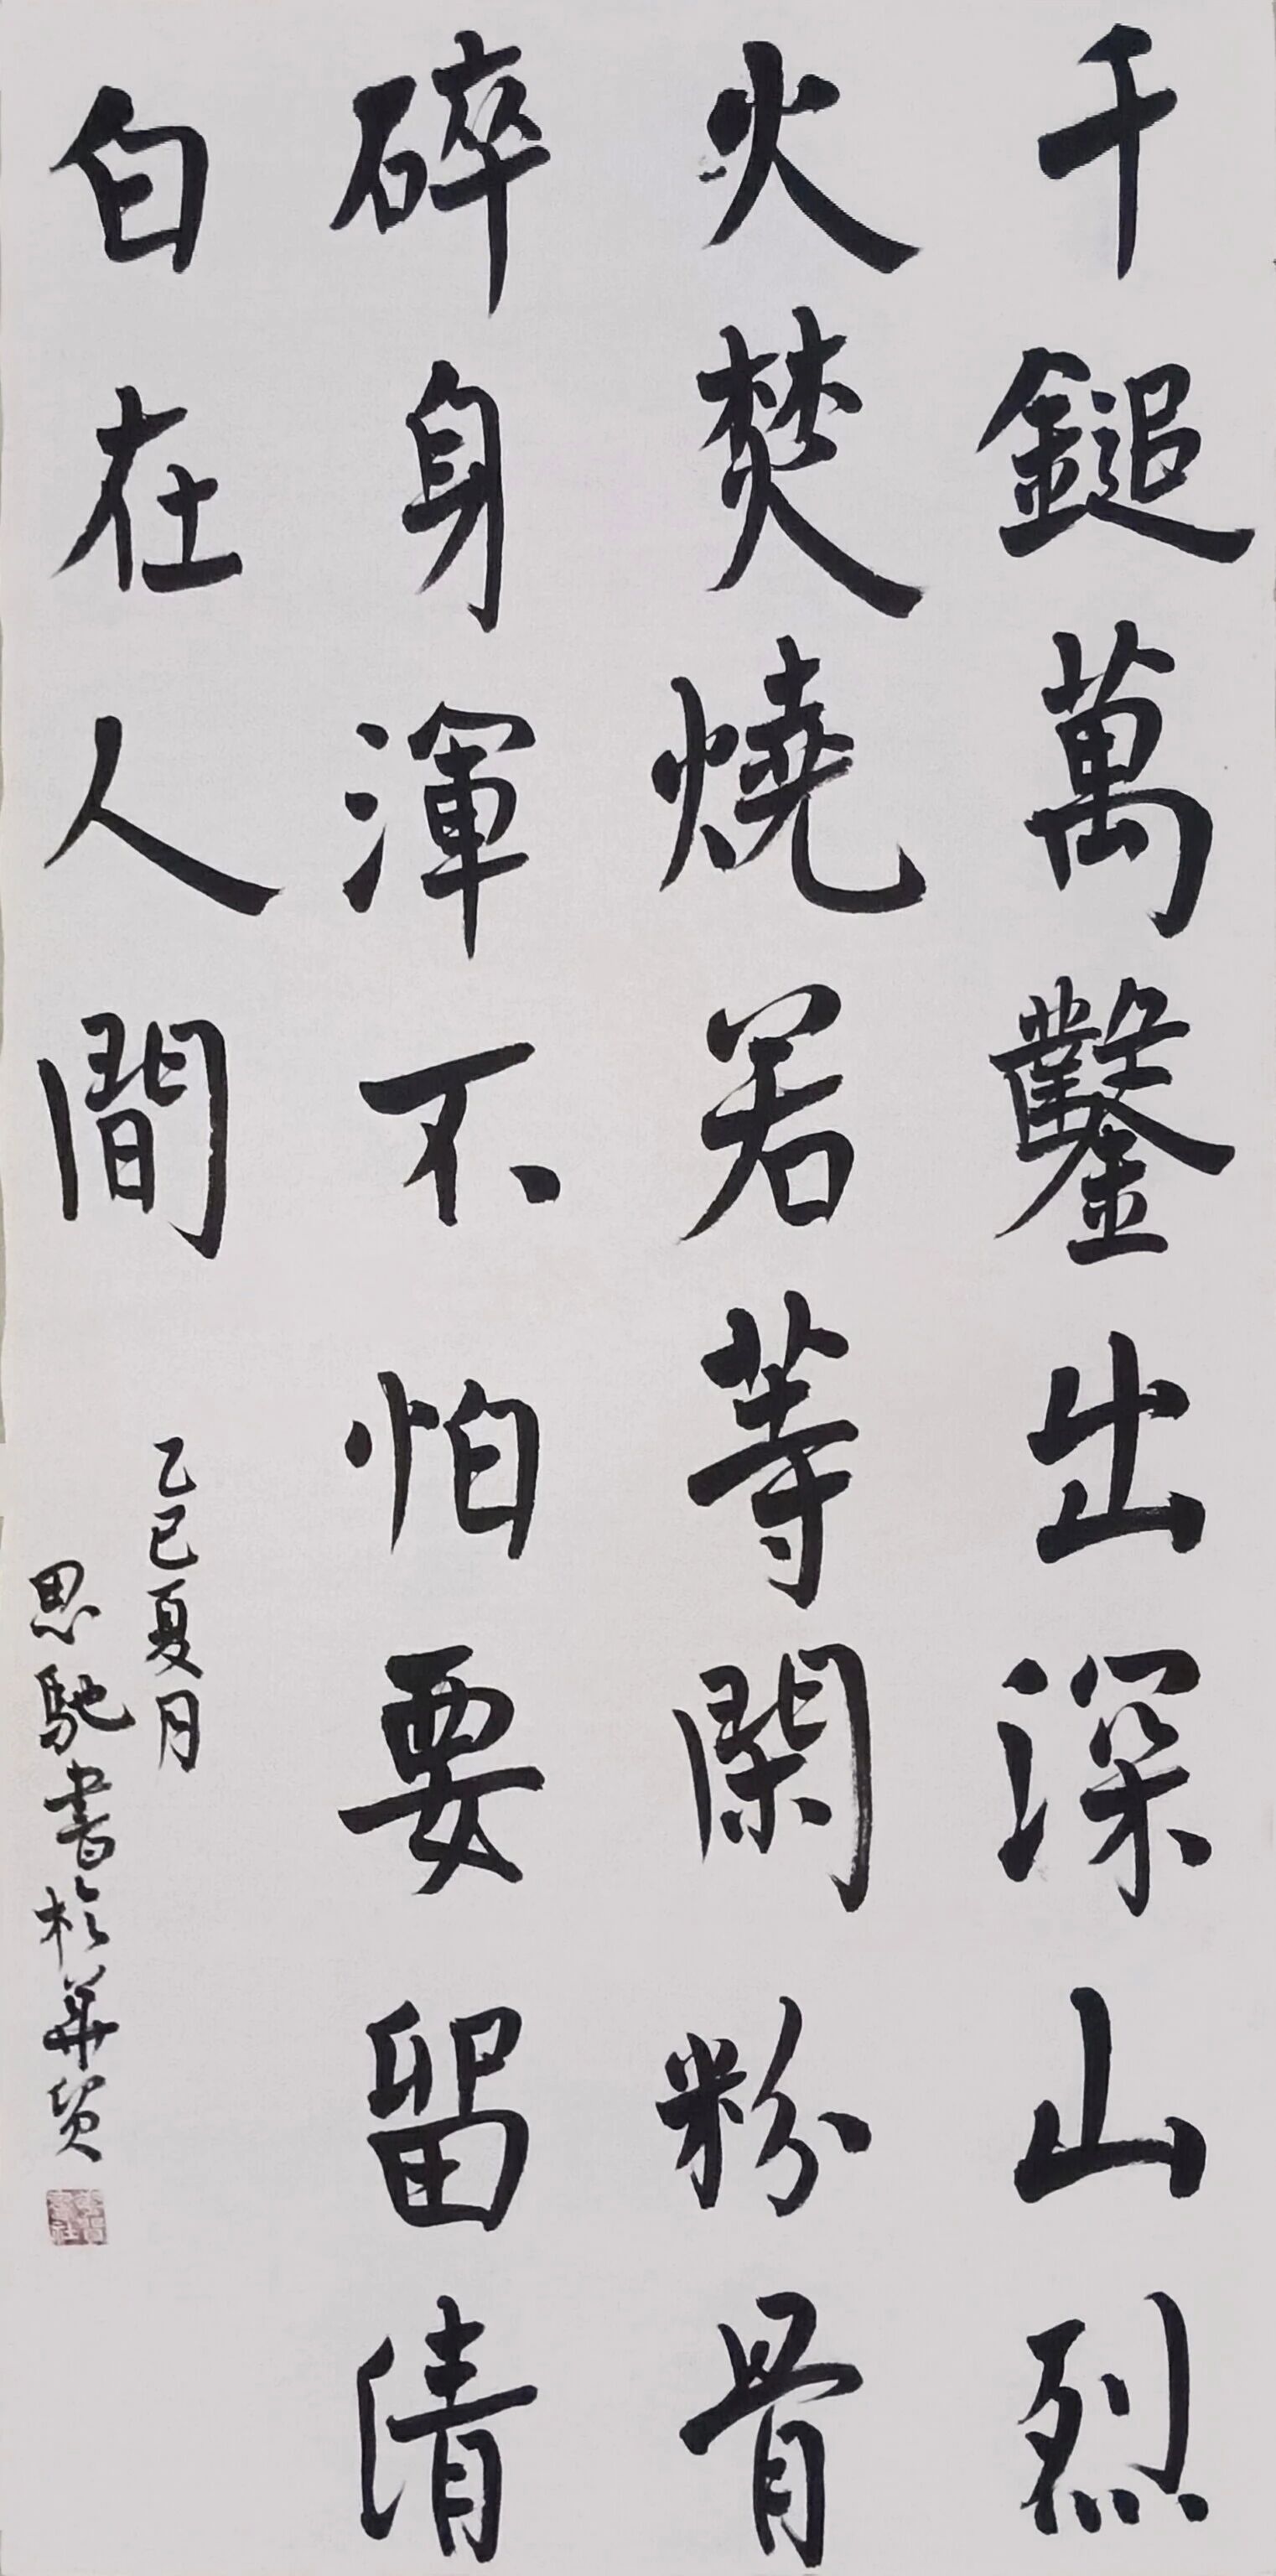 千鎚萬鑿出深山烈
火焚燒若等閑粉骨
碎身渾不怕要留清
白在人間
乙巳夏月
思馳書於華貿